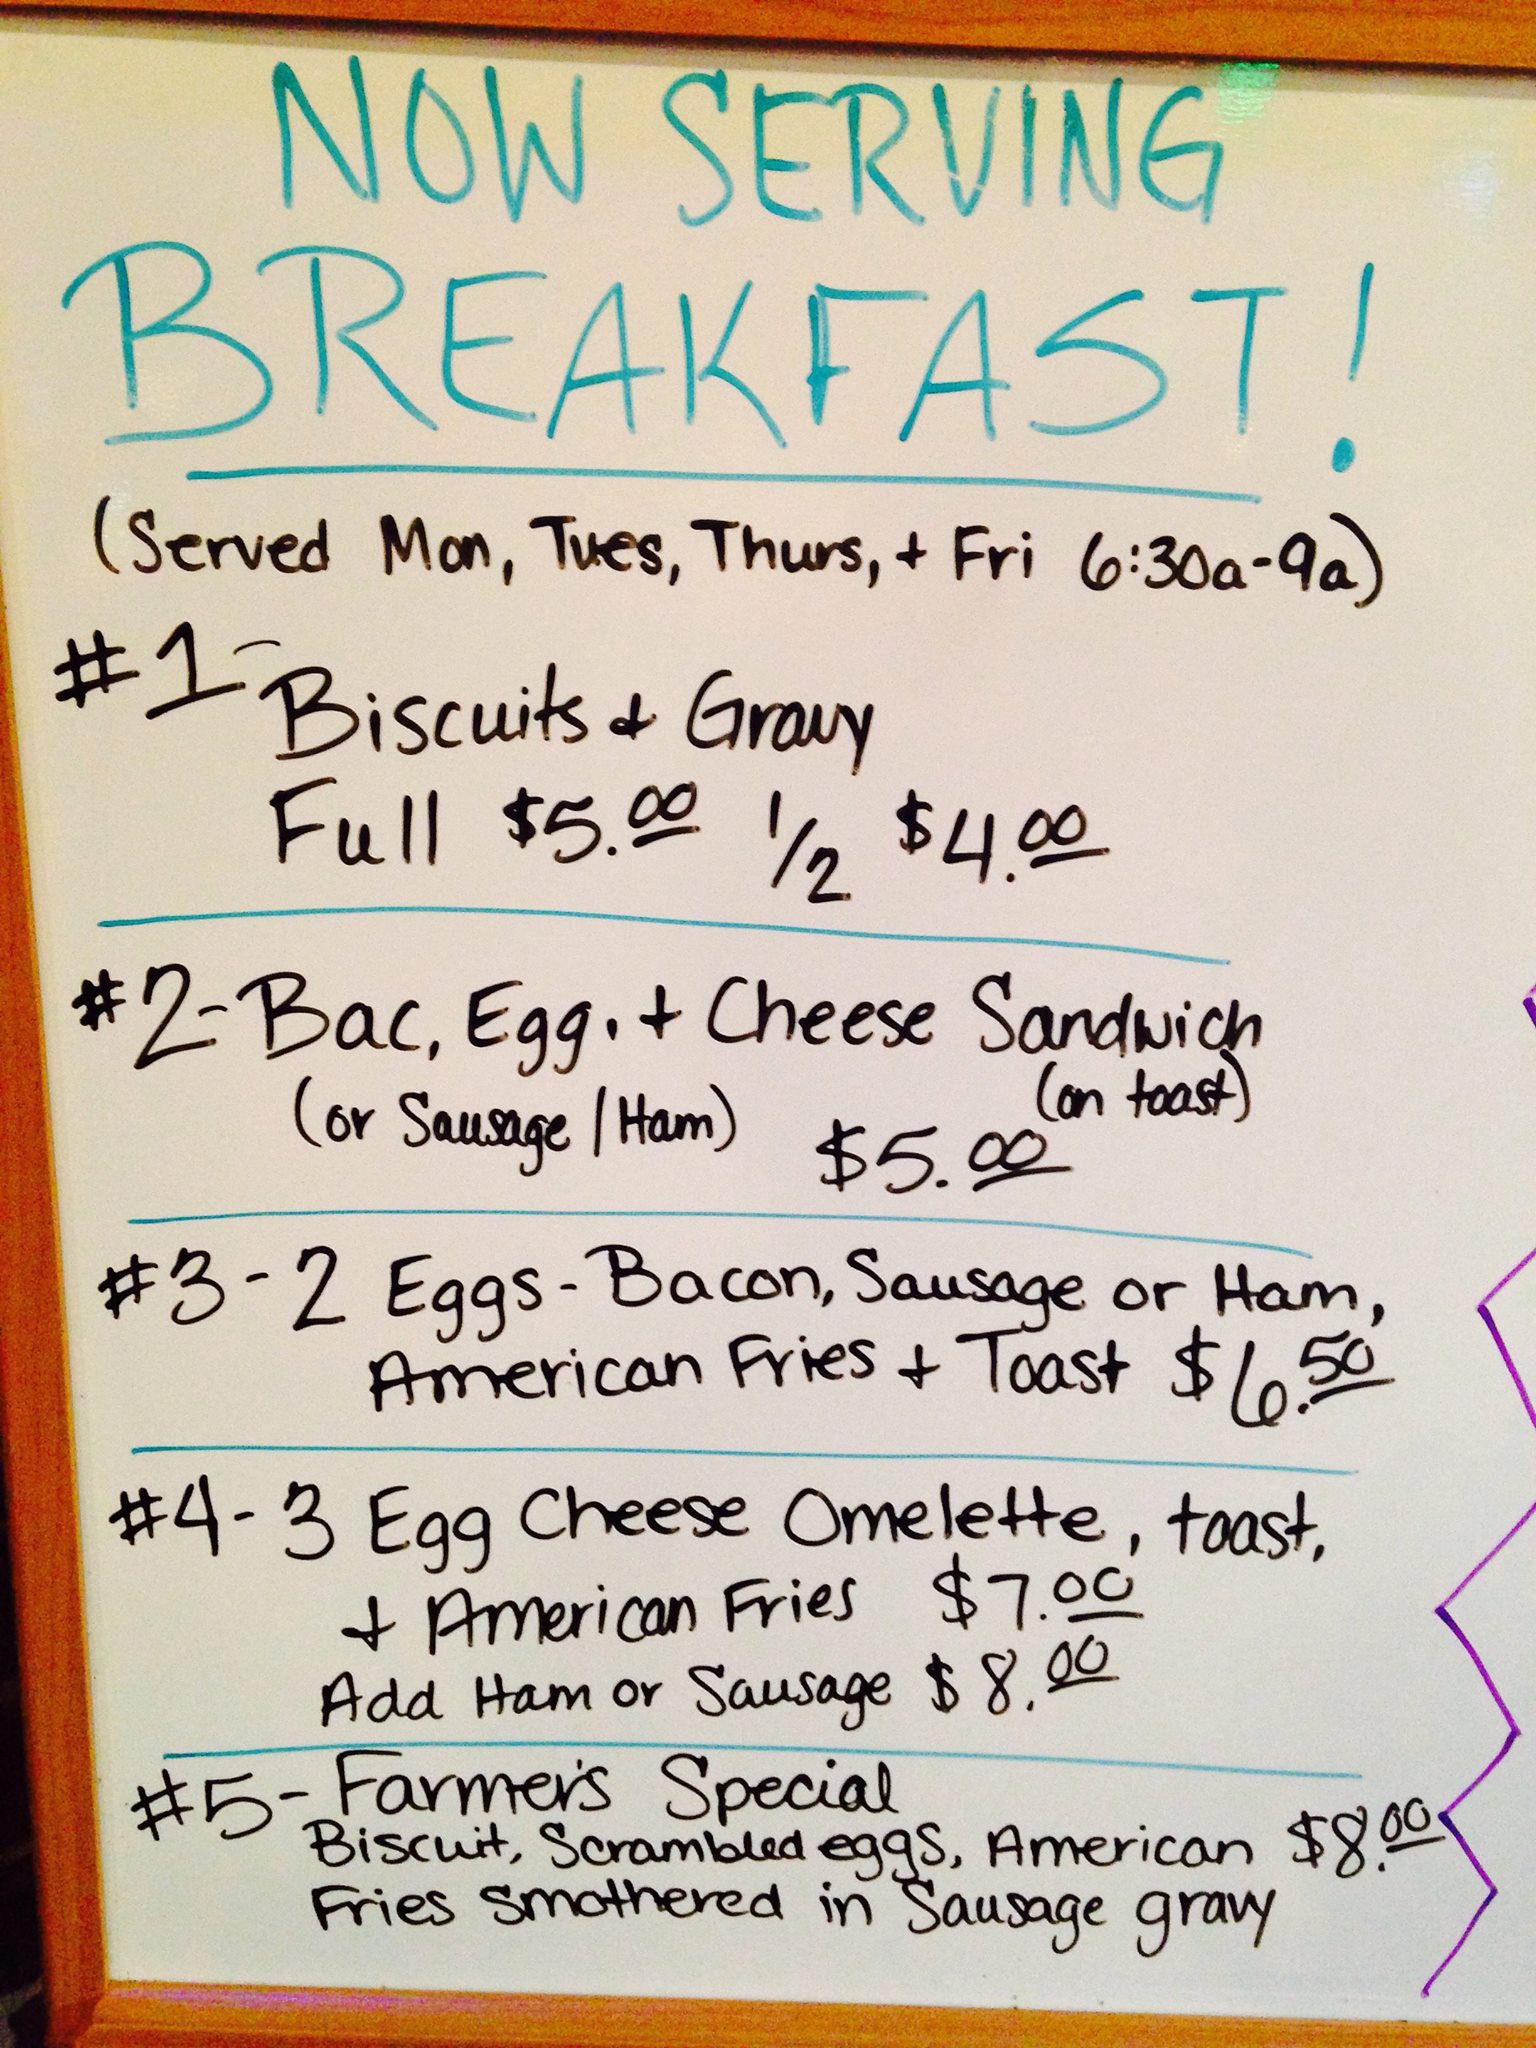 NOW SERVING
BREAKFAST!
(Served Mon, Tues, Thurs, + Fri 6:30a-9a)
#1-
Biscuits + Gravy
Full $5.00 1/2 $4.00
#2- Bac, Egg, + Cheese Sandwich
(or Sausage/Ham) (on toast)
$5.00
#3 - 2 Eggs - Bacon, Sausage or Ham,
American Fries + Toast $6.50
#4 - 3 Egg Cheese Omelette, toast,
+ American Fries $7.00
Add Ham or Sausage $8.00
#5 - Farmer's Special
Biscuit, Scrambled eggs, American $8.00
Fries smothered in Sausage gravy